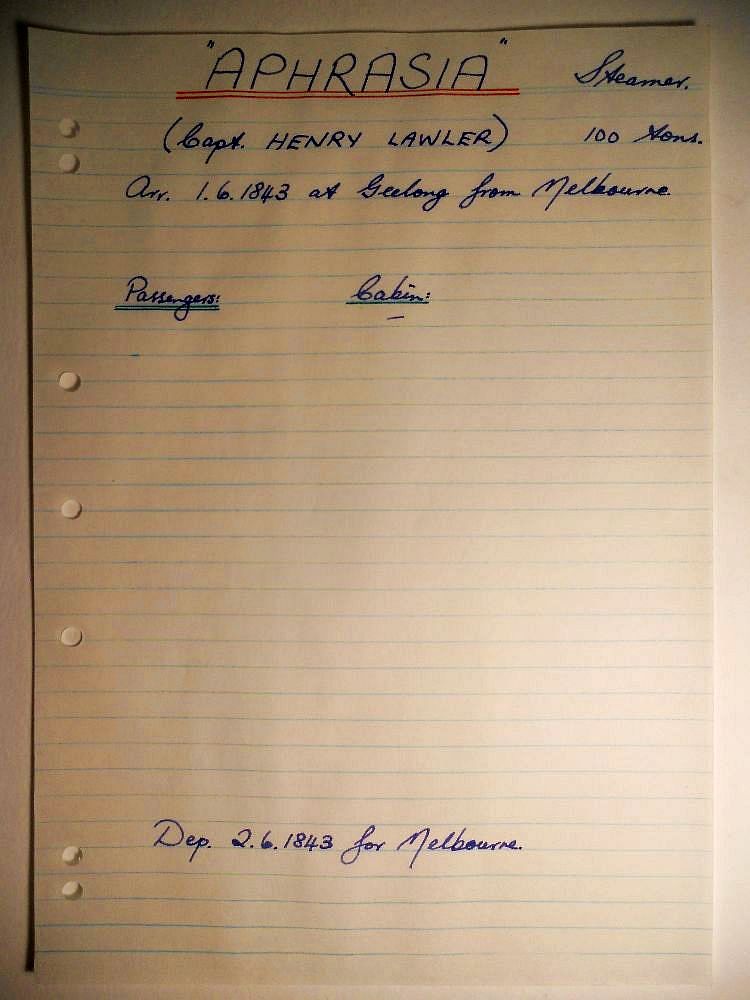 "APHRASIA" Steamer.
(Capt. HENRY LAWLER) 100 tons.
Arr. 1.6.1843 at Geelong from Melbourne
Passengers: Cabin:
–
Dep. 2.6.1843 for Melbourne.